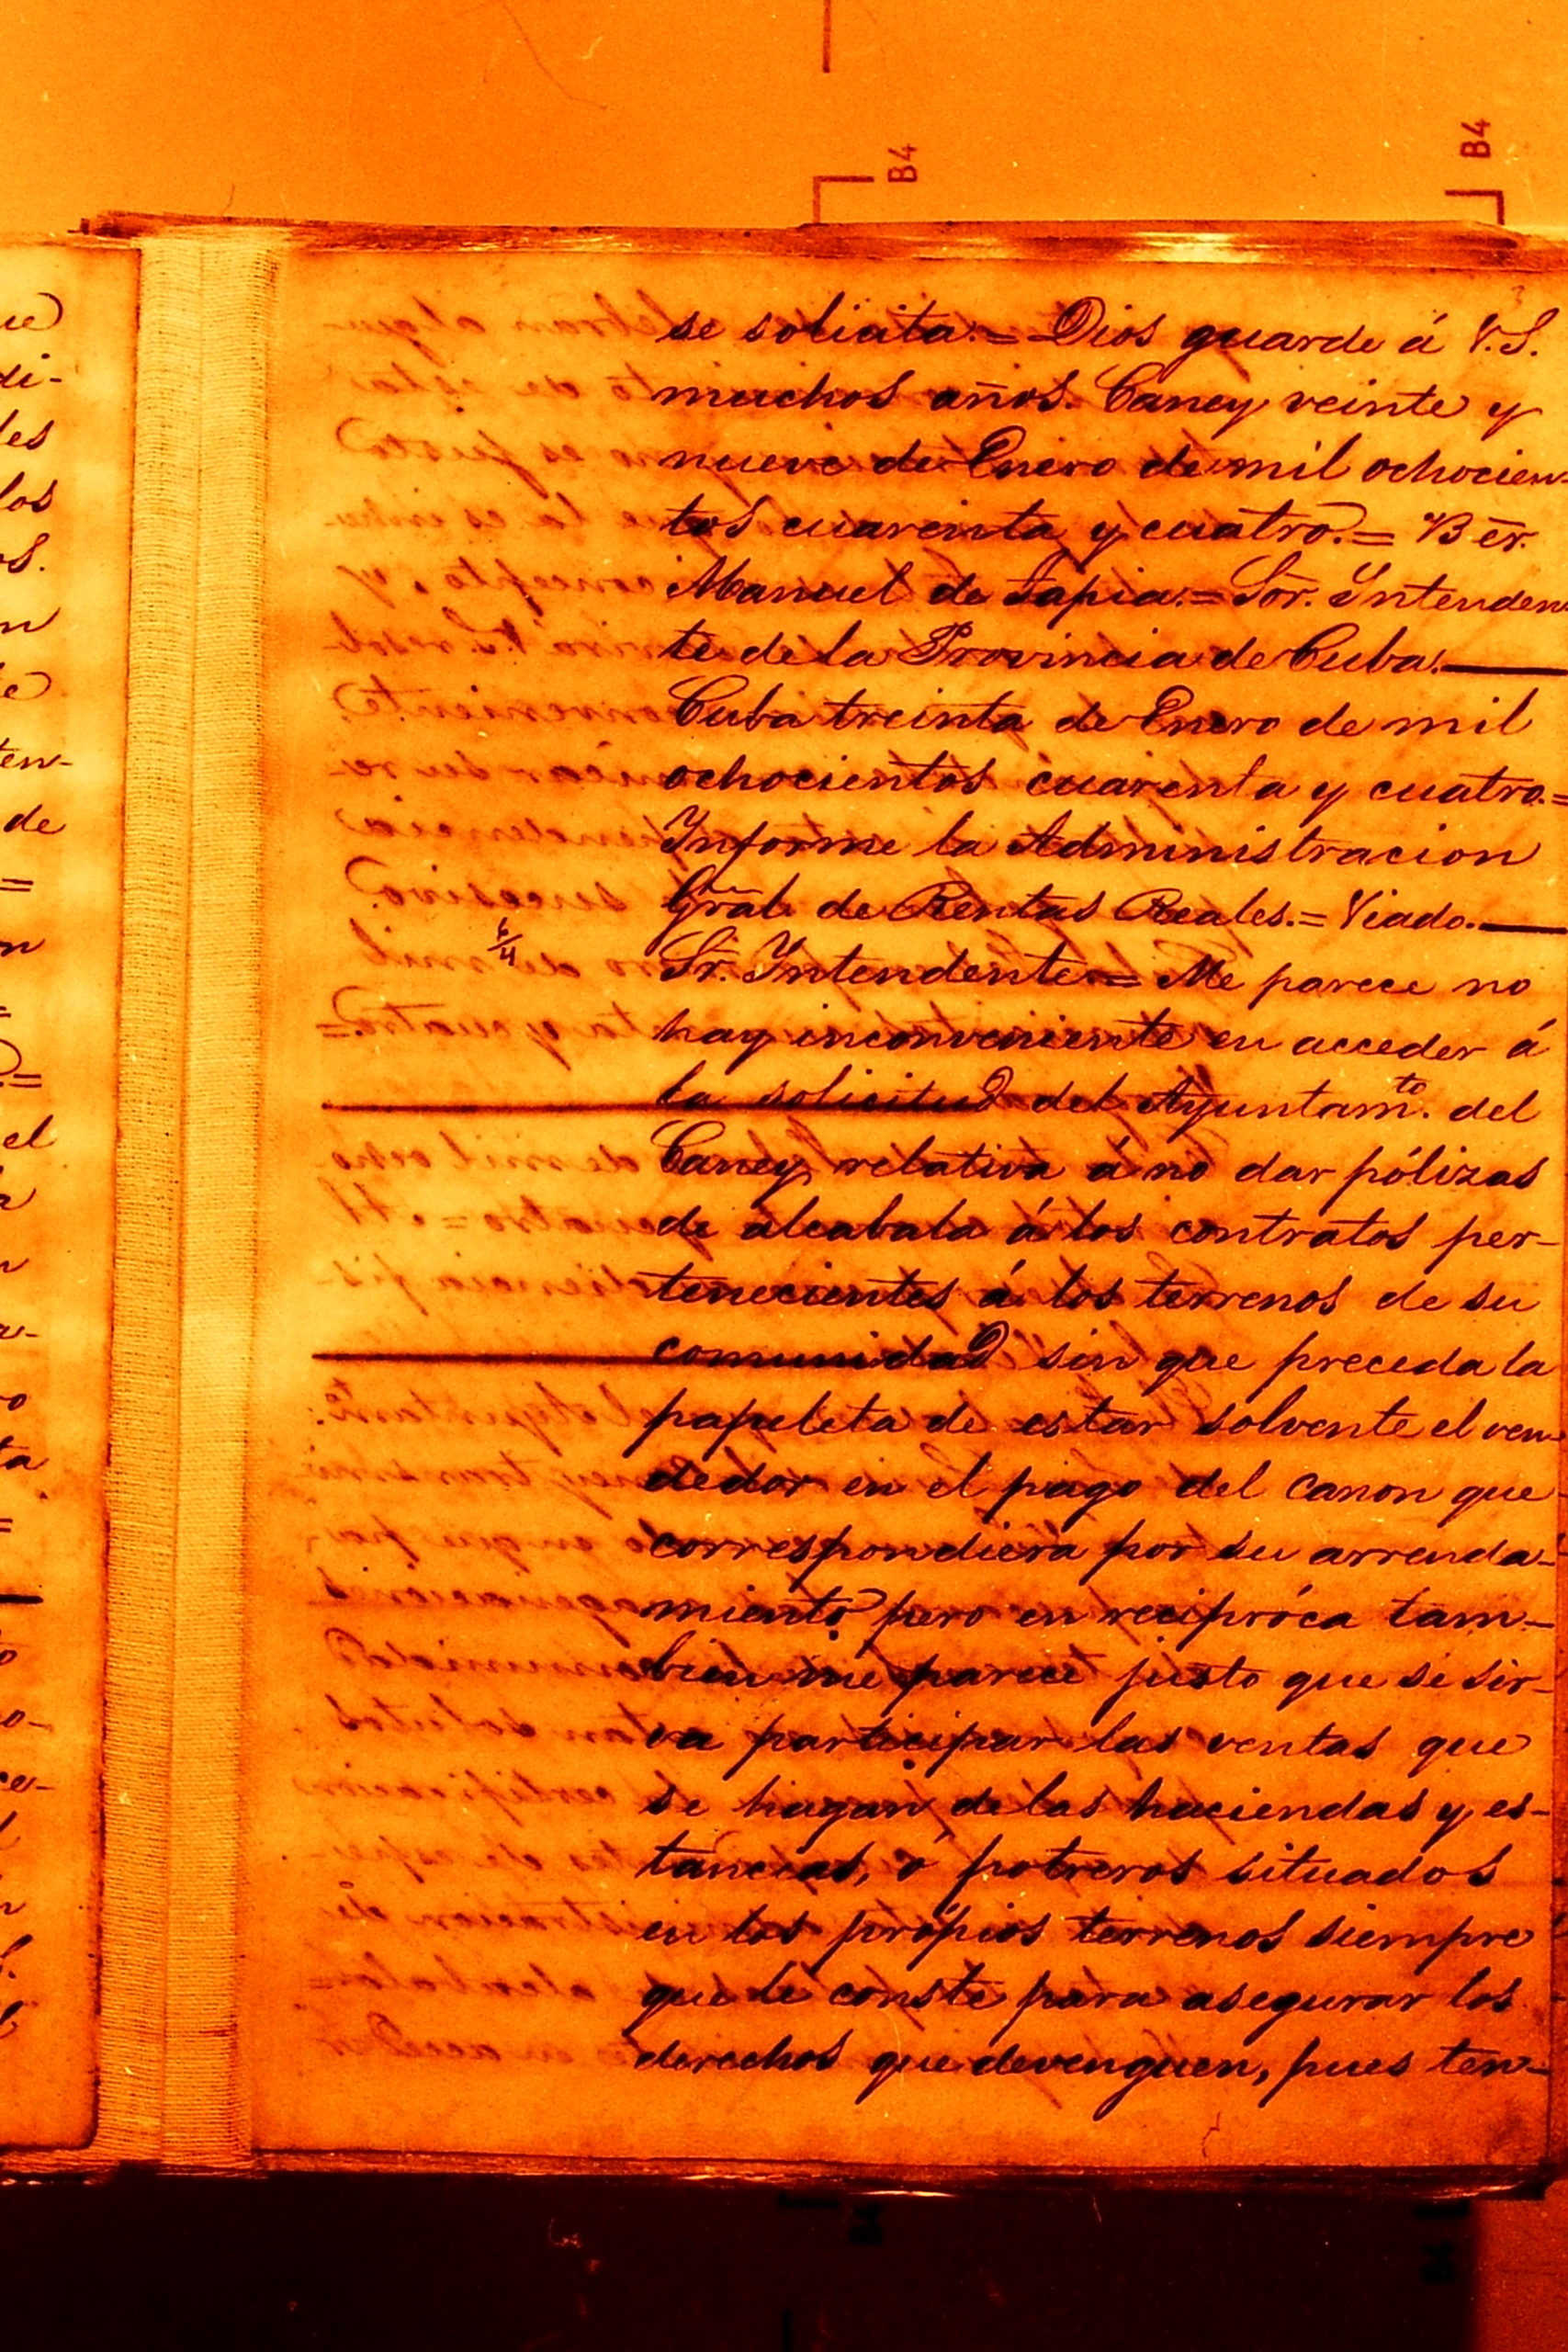 B4
B4
3
se solicita.= Dios guarde á V.S.
muchos años. Caney veinte y
nueve de Enero de mil ochocien-
tos cuarenta y cuatro.= Bēr.
Manuel de Tapia.= Sōr. Yntenden
te de la Provincia de Cuba.
Cuba treinta de Enero de mil
ochocientos cuarenta y cuatro.=
Ynforme la Administracion
Grāl. de Rentas Reales.= Viado.
6/4
Sr. Yntendente.= Me parece no
hay inconveniente en acceder á
la solicitud del Ayuntamto. del
Caney relativa á no dar pólizas
de alcabala á los contratos per-
tenecientes á los terrenos de su
comunidad sin que preceda la
papeleta de estar solvente el ven-
dedor en el pago del canon que
correspondiera por su arrenda-
miento pero en recipróca tam-
bien me parece justo que se sir-
va participar las ventas que
se hagan de las haciendas y es-
tancias, ó potreros situados
en los própios terrenos siempre
que le conste para asegurar los
derechos que devenguen, pues ten-
B4